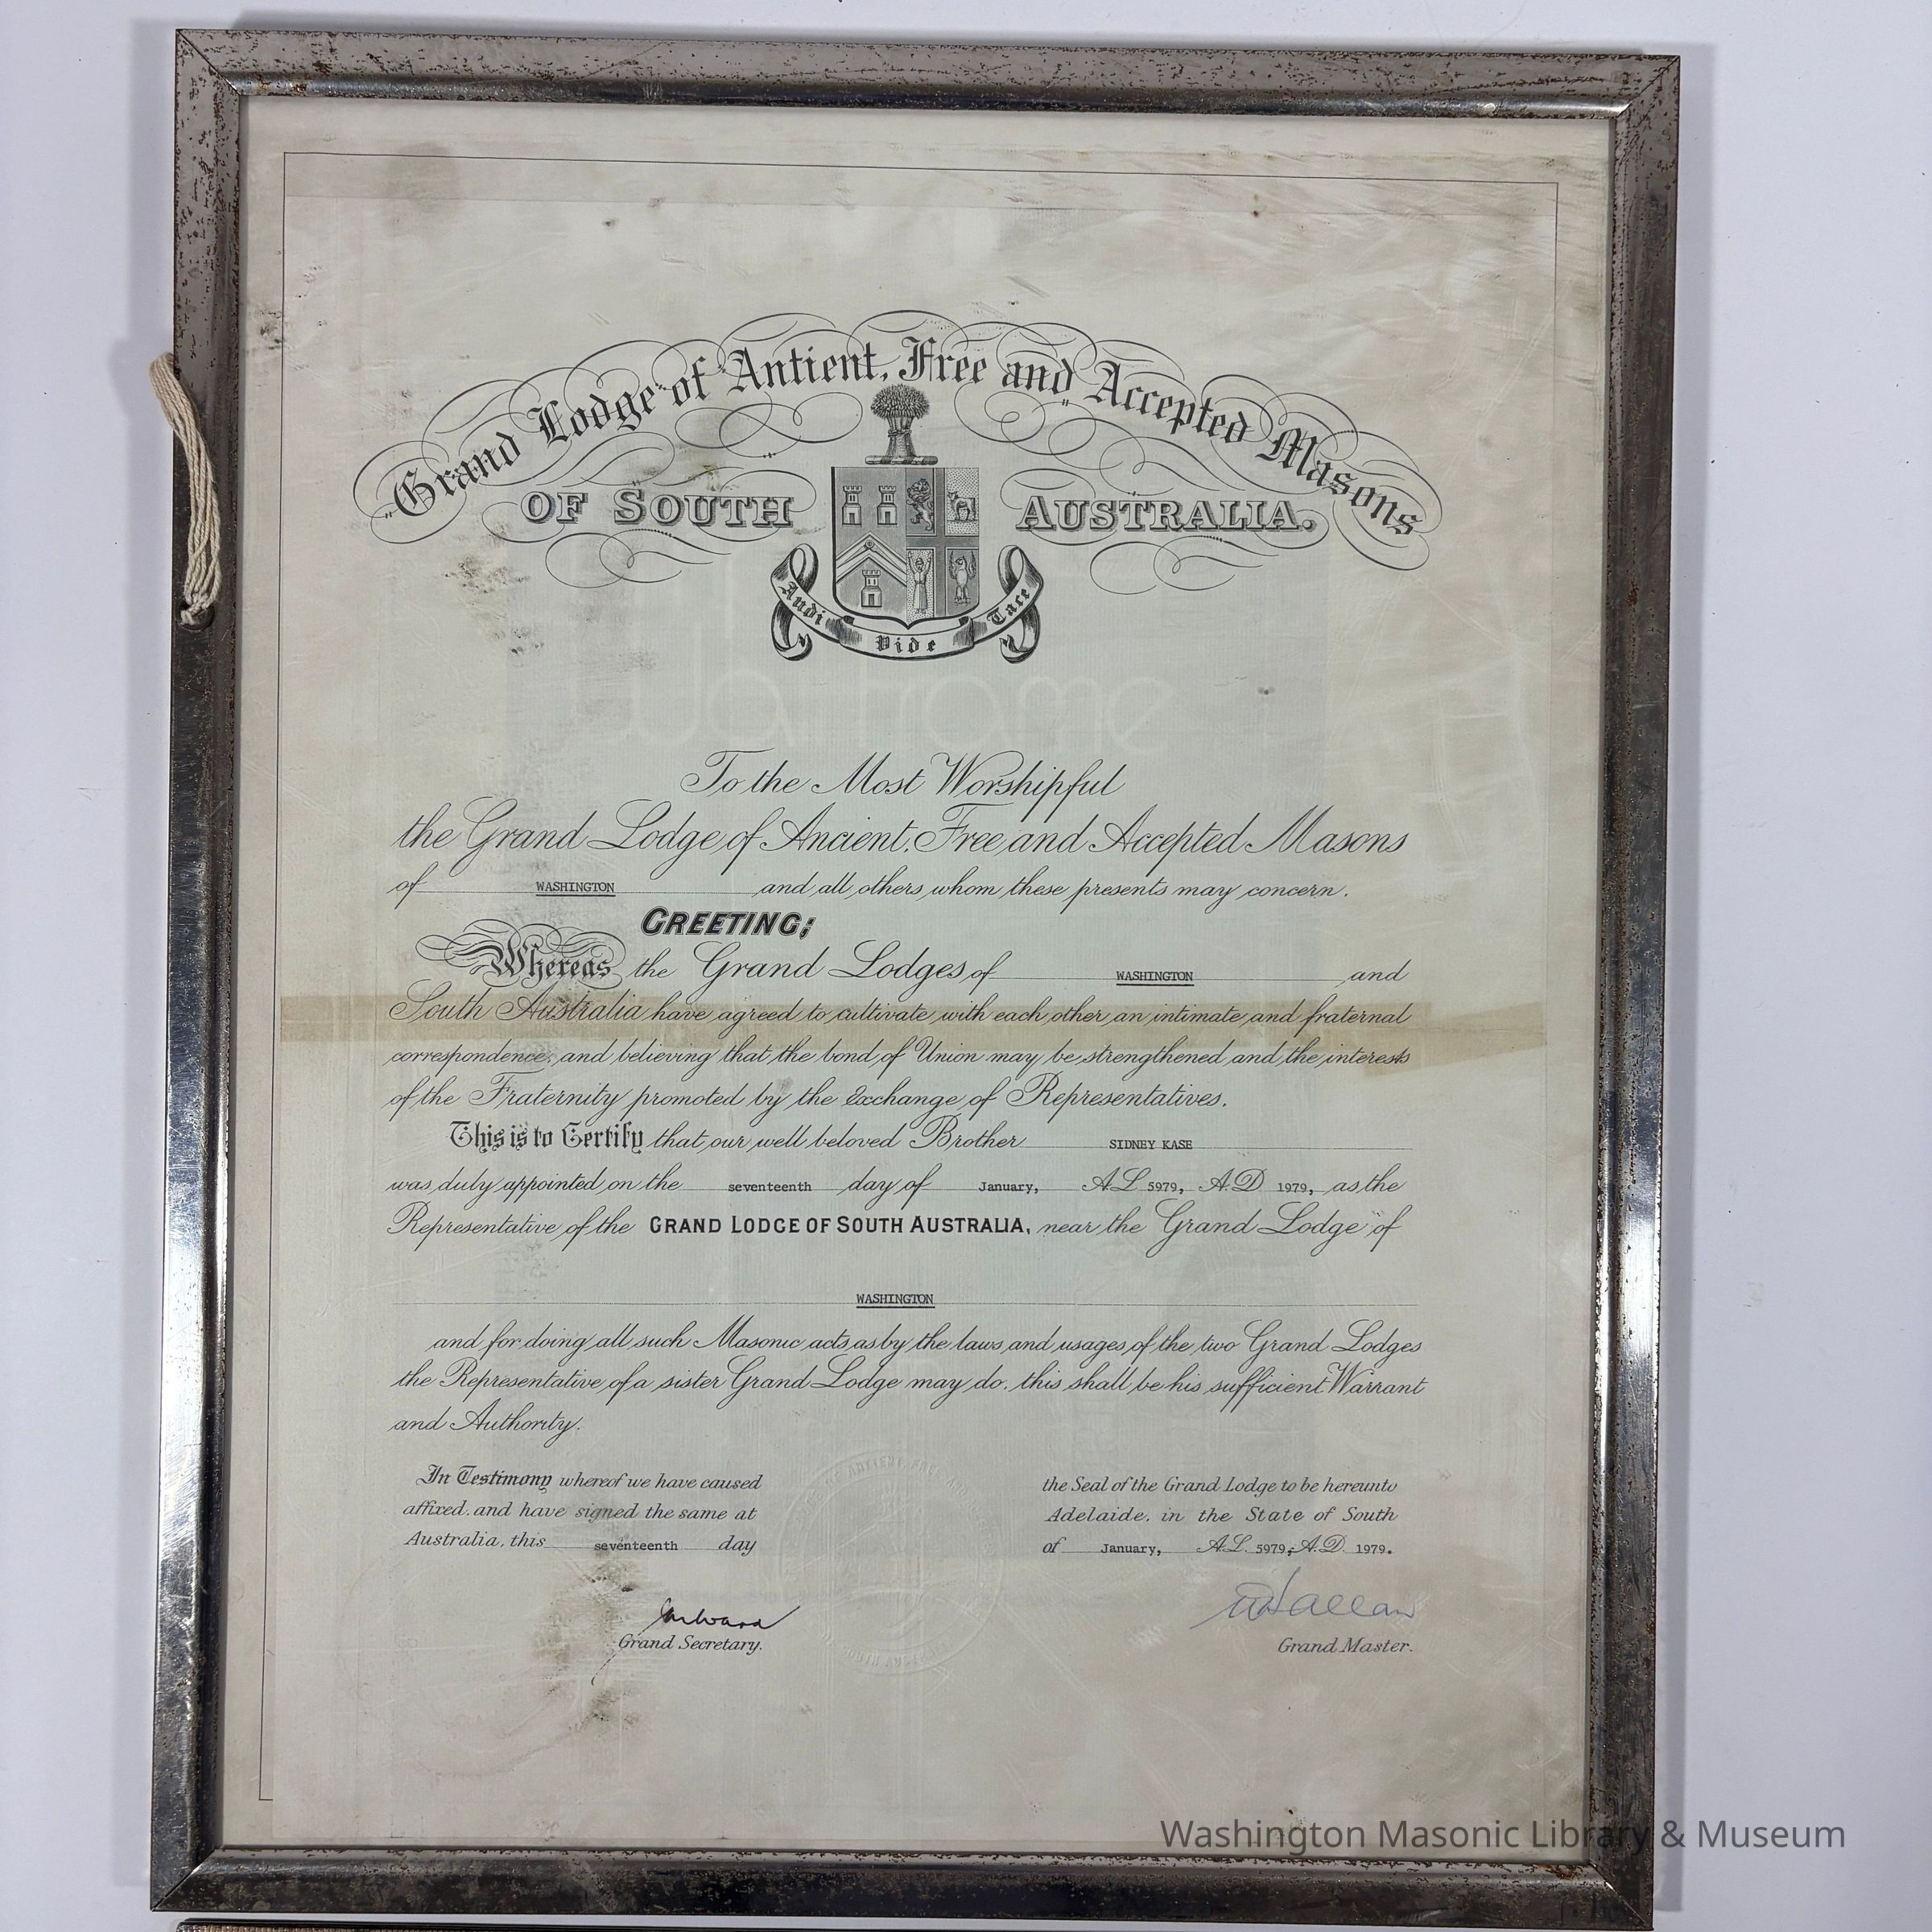 Grand Lodge of Antient, Free and Accepted Masons
OF SOUTH AUSTRALIA.
Audi Vide Tace
To the Most Worshipful
the Grand Lodge of Ancient, Free and Accepted Masons
of WASHINGTON and all others whom these presents may concern.
GREETING;
Whereas the Grand Lodges of WASHINGTON and
South Australia have agreed to cultivate with each other an intimate and fraternal
correspondence, and believing that the bond of Union may be strengthened and the interests
of the Fraternity promoted by the Exchange of Representatives.
This is to Certify that our well beloved Brother SIDNEY KASE
was duly appointed on the seventeenth day of January, A.L 5979, A.D 1979, as the
Representative of the GRAND LODGE OF SOUTH AUSTRALIA, near the Grand Lodge of
WASHINGTON
and for doing all such Masonic acts as by the laws and usages of the two Grand Lodges
the Representative of a sister Grand Lodge may do, this shall be his sufficient Warrant
and Authority.
In Testimony whereof we have caused the Seal of the Grand Lodge to be hereunto
affixed and have signed the same at Adelaide, in the State of South
Australia, this seventeenth day of January, A.L. 5979, A.D. 1979.
Grand Secretary. Grand Master.
Washington Masonic Library & Museum